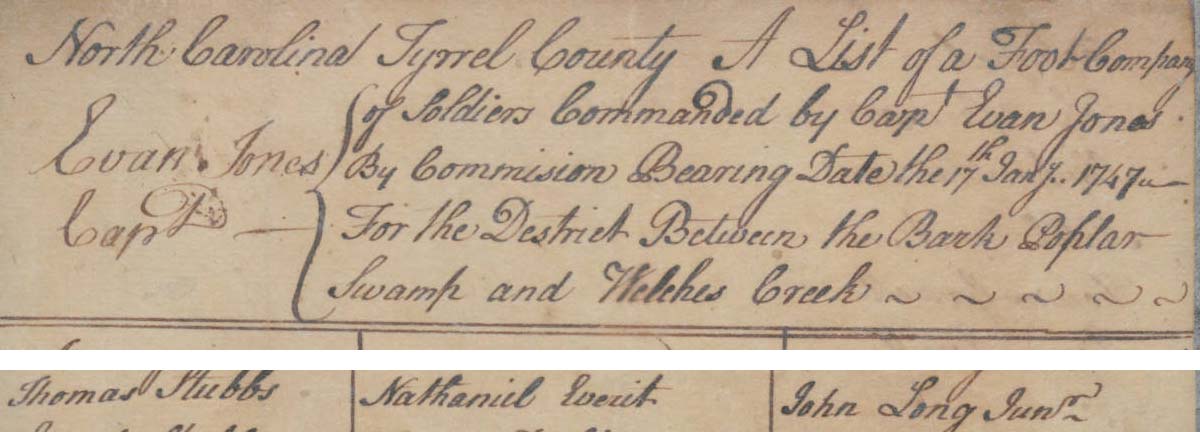 North Carolina Tyrrel County A List of a Foot Company
of Soldiers Commanded by Capt Evan Jones
Evan Jones
By Commision Bearing Date the 17th Jany. 1747
Capt
For the Destrict Between the Bark Poplar
Swamp and Welches Creek ~ ~ ~ ~ ~
Thomas Stubbs Nathaniel Everit John Long Junr